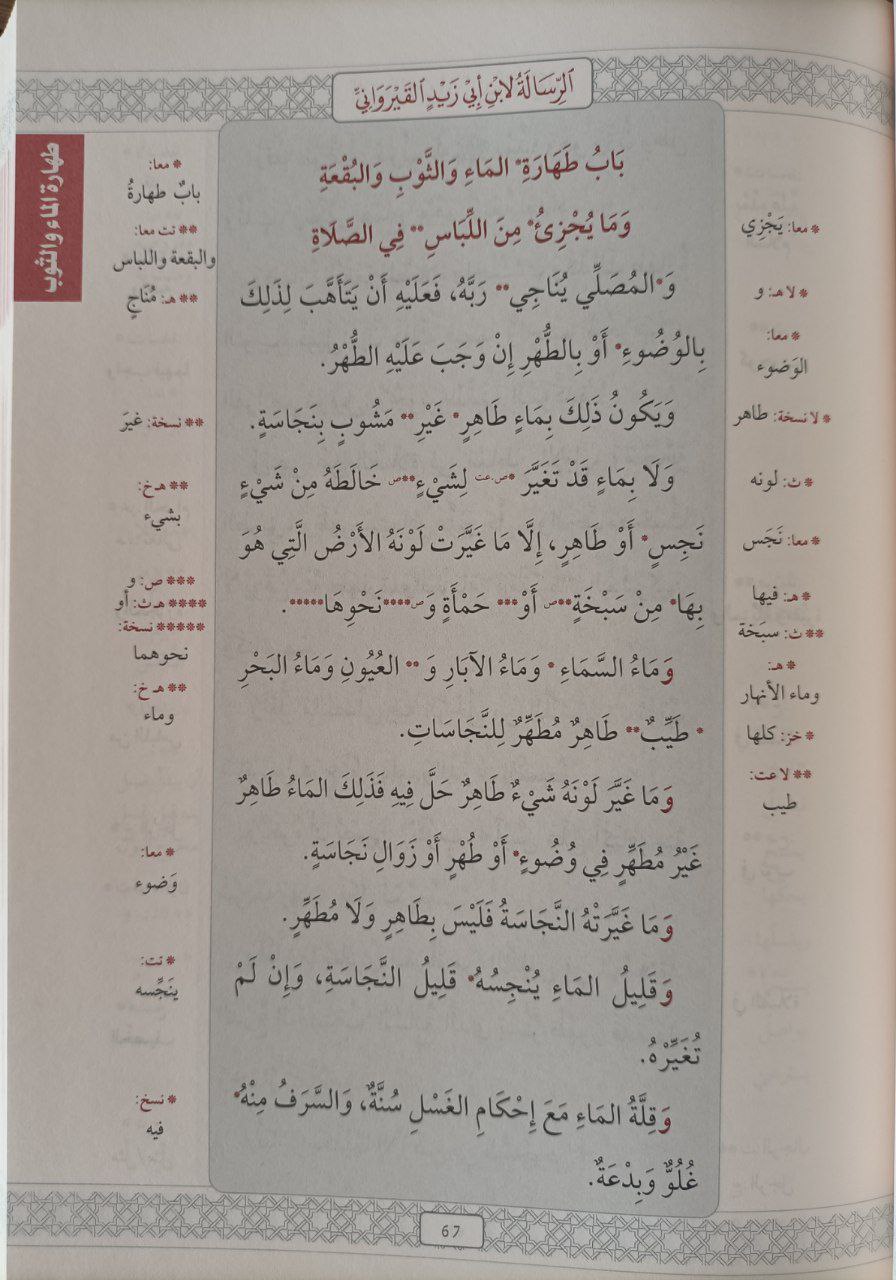 الرِّسَالَةُ لِابْنِ أَبِي زَيْدٍ القَيْرَوَانِيِّ
طهارة الماء والثوب
بَابُ طَهَارَةِ* المَاءِ وَالثَّوْبِ وَالبُقْعَةِ
وَمَا يُجْزِئُ* مِنَ اللِّبَاسِ** فِي الصَّلَاةِ
وَ*المُصَلِّي يُنَاجِي** رَبَّهُ، فَعَلَيْهِ أَنْ يَتَأَهَّبَ لِذَلِكَ
بِالوُضُوءِ* أَوْ بِالطُّهْرِ إِنْ وَجَبَ عَلَيْهِ الطُّهْرُ.
وَيَكُونُ ذَلِكَ بِمَاءٍ طَاهِرٍ* غَيْرِ** مَشُوبٍ بِنَجَاسَةٍ.
وَلَا بِمَاءٍ قَدْ تَغَيَّرَ *ص.عت لِشَيْءٍ**ص خَالَطَهُ مِنْ شَيْءٍ
نَجِسٍ* أَوْ طَاهِرٍ، إِلَّا مَا غَيَّرَتْ لَوْنَهُ الأَرْضُ الَّتِي هُوَ
بِهَا* مِنْ سَبْخَةٍ**ص أَوْ*** حَمْأَةٍ وَص****نَحْوِهَا*****.
وَمَاءُ السَّمَاءِ * وَمَاءُ الآبَارِ وَ ** العُيُونِ وَمَاءُ البَحْرِ
* طَيِّبٌ** طَاهِرٌ مُطَهِّرٌ لِلنَّجَاسَاتِ.
وَمَا غَيَّرَ لَوْنَهُ شَيْءٌ طَاهِرٌ حَلَّ فِيهِ فَذَلِكَ المَاءُ طَاهِرٌ
غَيْرُ مُطَهِّرٍ فِي وُضُوءٍ* أَوْ طُهْرٍ أَوْ زَوَالِ نَجَاسَةٍ.
وَمَا غَيَّرَتْهُ النَّجَاسَةُ فَلَيْسَ بِطَاهِرٍ وَلَا مُطَهِّرٍ.
وَقَلِيلُ المَاءِ يُنْجِسُهُ* قَلِيلُ النَّجَاسَةِ، وَإِنْ لَمْ
تُغَيِّرْهُ.
وَقِلَّةُ المَاءِ مَعَ إِحْكَامِ الغَسْلِ سُنَّةٌ، وَالسَّرَفُ مِنْهُ*
غُلُوٌّ وَبِدْعَةٌ.
* معا: يَجْزِي
* لا هـ: و
* معا:
الوَضوء
* لا نسخة: طاهر
* ث: لونه
* معا: نَجَس
* هـ: فيها
** ث: سبَخة
* هـ:
وماء الأنهار
* خز: كلها
** لا عت:
طيب
* معا:
بابٌ طهارةُ
** تت معا:
والبقعة واللباس
** هـ: مُنَاجٍ
** نسخة: غيرَ
** هـ خ:
بشيء
*** ص: و
**** هـ ث: أو
***** نسخة:
نحوهما
** هـ خ:
وماء
* معا:
وَضوء
* تت:
ينَجِّسه
* نسخ:
فيه
67